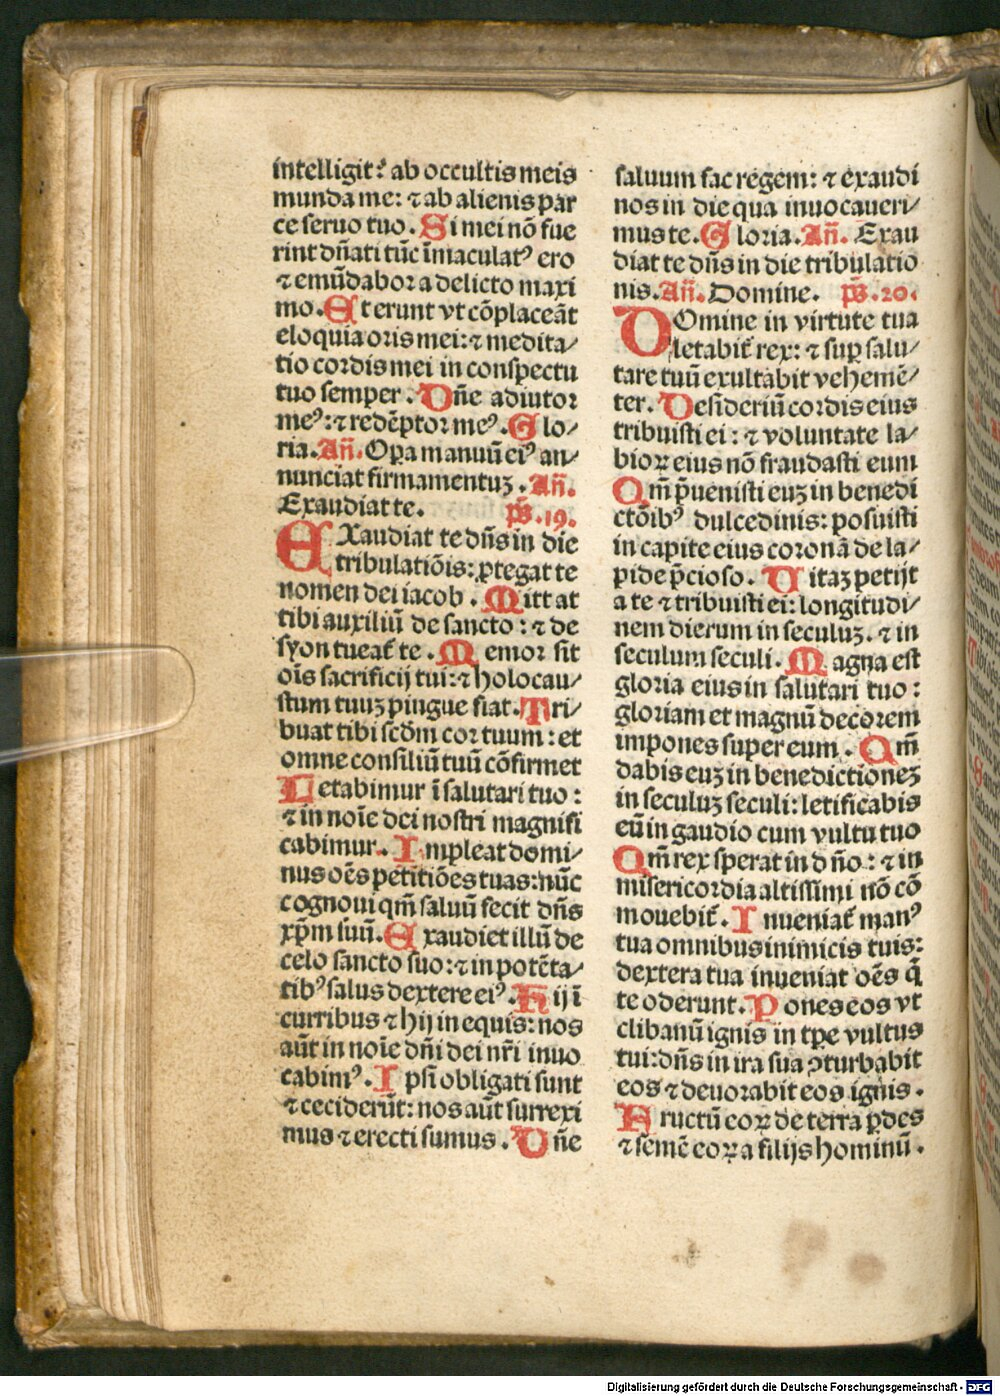 intelligit: ab occultis meis
munda me: ⁊ ab alienis par
ce seruo tuo. Si mei nō fue
rint dn̄ati tūc īmaculatꝰ ero
⁊ emūdabor a delicto maxi
mo. Et erunt vt cōplaceāt
eloquia oris mei: ⁊ medita/
tio cordis mei in conspectu
tuo semper. Dn̄e adiutor
meꝰ: ⁊ redēptor meꝰ. Glo/
ria. Añ. Opera manuū eiꝰ an/
nunciat firmamentuȝ. Añ.
Exaudiat te. p̄s. 19.
EXaudiat te dn̄s in die
tribulatiōis: ꝓtegat te
nomen dei iacob. Mittat
tibi auxiliū de sancto: ⁊ de
syon tueat̄ te. Memor sit
oīs sacrificij tui: ⁊ holocau/
stum tuuȝ pingue fiat. Tri/
buat tibi scd̄m cor tuum: et
omne consiliū tuū cōfirmet
Letabimur ī salutari tuo:
⁊ in noīe dei nostri magnifi
cabimur. Impleat domi/
nus oēs petitiōes tuas: nūc
cognoui qm̄ saluū fecit dn̄s
xp̄m suū. Exaudiet illū de
celo sancto suo: ⁊ in potēta/
tibꝰ salus dextere eiꝰ. Hij ī
curribus ⁊ hij in equis: nos
aūt in noīe dn̄i dei nr̄i inuo
cabimꝰ. Ipsi obligati sunt
⁊ ceciderūt: nos aūt surrexi
mus ⁊ erecti sumus. Dn̄e
saluum fac regem: ⁊ exaudi
nos in die qua inuocaueri/
mus te. Gloria. Añ. Exau
diat te dn̄s in die tribulatio
nis. Añ. Domine. p̄s. 20.
DOmine in virtute tua
letabit̄ rex: ⁊ suꝑ salu/
tare tuū exultabit vehemē/
ter. Desideriū cordis eius
tribuisti ei: ⁊ voluntate la/
bioꝝ eius nō fraudasti eum
Qm̄ p̄uenisti euȝ in benedi
ctōibꝰ dulcedinis: posuisti
in capite eius coronā de la/
pide p̄cioso. Vitaȝ petijt
a te ⁊ tribuisti ei: longitudi/
nem dierum in seculuȝ. ⁊ in
seculum seculi. Magna est
gloria eius in salutari tuo:
gloriam et magnū decorem
impones super eum. Qm̄
dabis euȝ in benedictioneȝ
in seculuȝ seculi: letificabis
eū in gaudio cum vultu tuo
Qm̄ rex sperat in dn̄o: ⁊ in
misericordia altissimi nō cō
mouebit̄. Inueniat̄ manꝰ
tua omnibus inimicis tuis:
dextera tua inueniat oēs q̄
te oderunt. Pones eos vt
clibanū ignis in tp̄e vultus
tui: dn̄s in ira sua ꝯturbabit
eos ⁊ deuorabit eos ignis.
Fructū eoꝝ de terra ꝑdes
⁊ semē eoꝝ a filijs hominū.
Digitalisierung gefördert durch die Deutsche Forschungsgemeinschaft - DFG